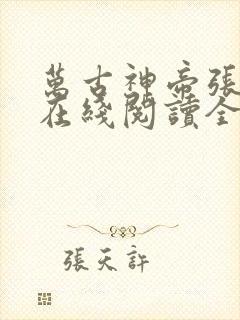 萬古神帝張
在綫閱讀全
張天許